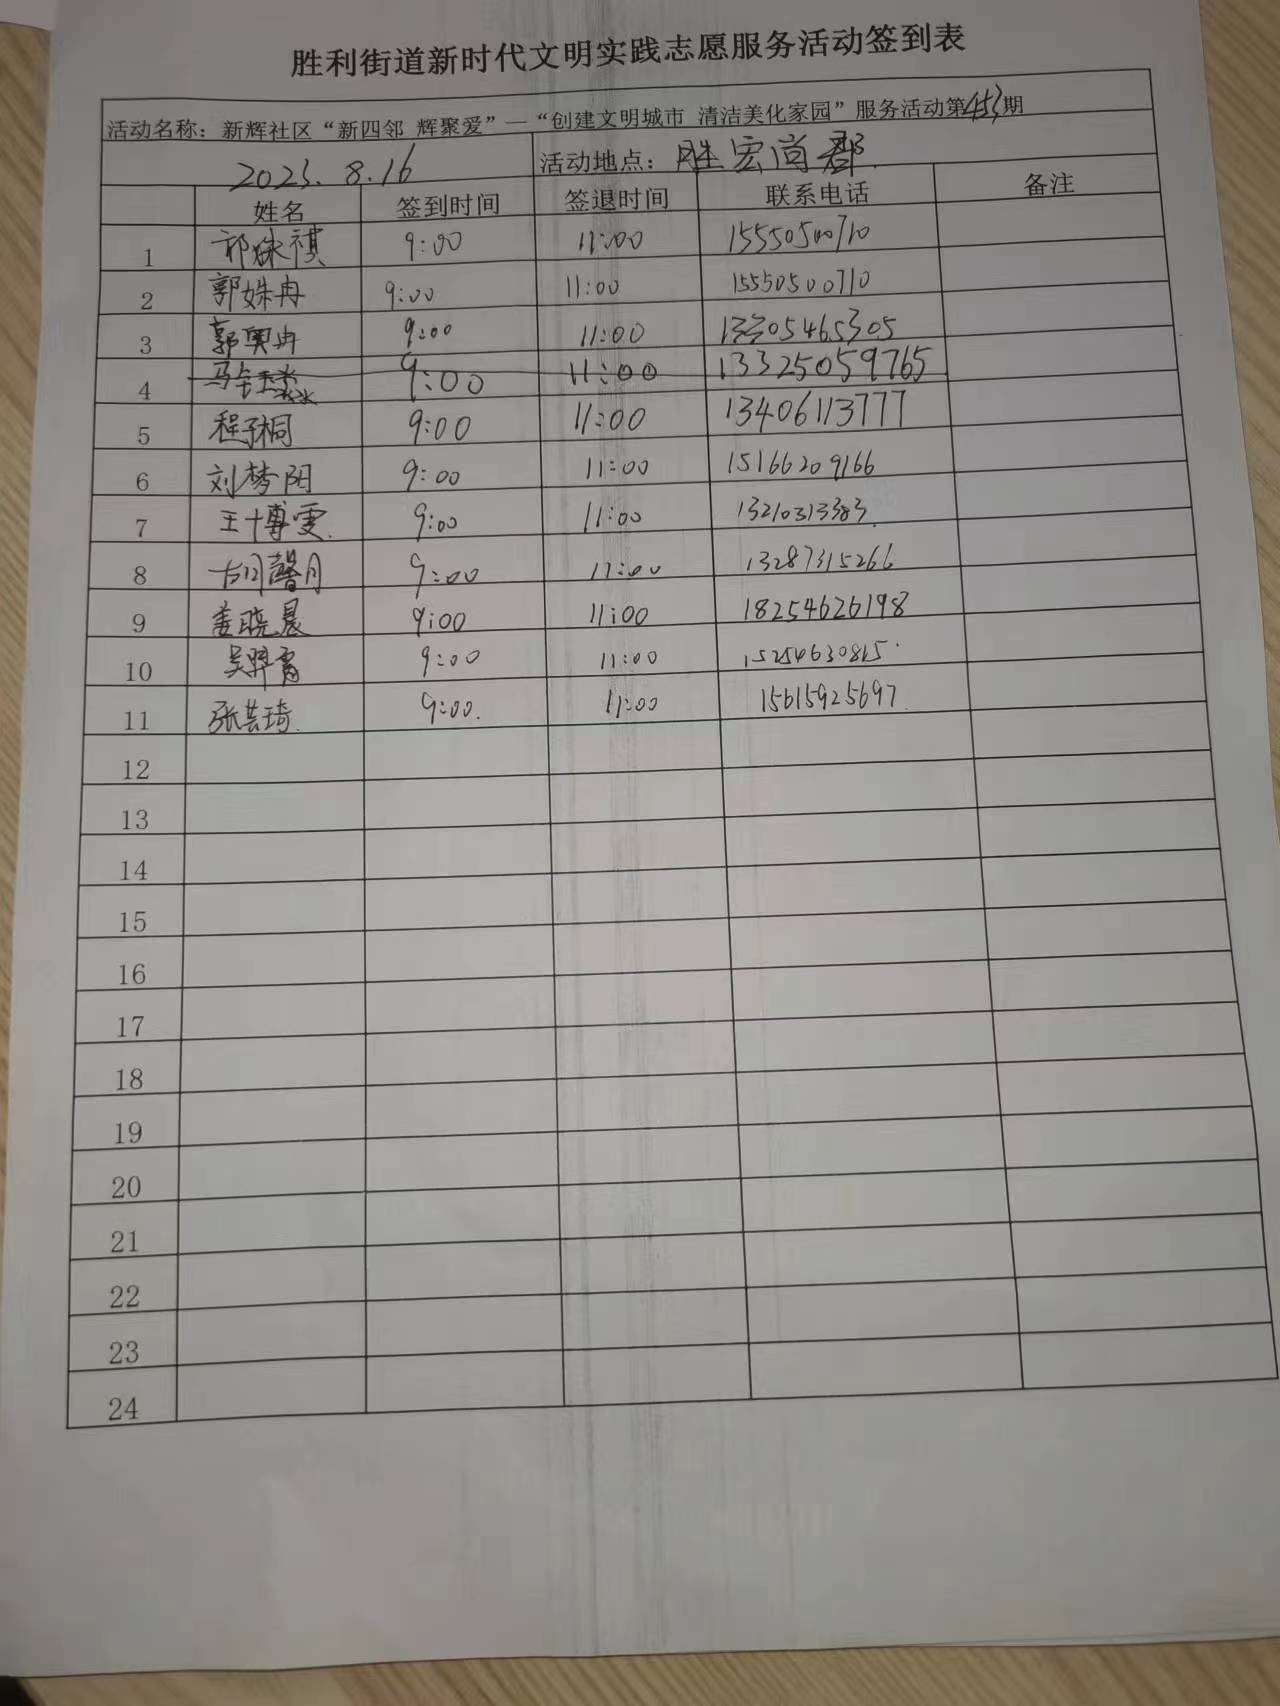 胜利街道新时代文明实践志愿服务活动签到表
活动名称：新辉社区“新四邻 辉聚爱”—“创建文明城市 清洁美化家园”服务活动第453期
2023.8.16 活动地点：胜宏尚郡
姓名 签到时间 签退时间 联系电话 备注
1 9:00 11:00 15550500710
2 郭姝冉 9:00 11:00 15550500710
3 郭奥冉 9:00 11:00 13305465305
4 9:00 11:00 13325059765
5 程子桐 9:00 11:00 13406113777
6 刘梦阳 9:00 11:00 15166209166
7 王博雯 9:00 11:00 13210313383
8 胡馨月 9:00 11:00 13287315266
9 姜晓晨 9:00 11:00 18254626198
10 9:00 11:00 15254630815
11 张芸琦 9:00 11:00 15615925697
12
13
14
15
16
17
18
19
20
21
22
23
24